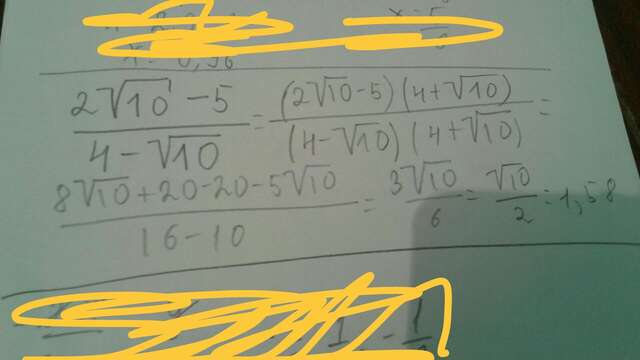 x = 0,96
(2√10 - 5)/(4 - √10) = (2√10 - 5)(4 + √10)/(4 - √10)(4 + √10) =
(8√10 + 20 - 20 - 5√10)/(16 - 10) = 3√10/6 = √10/2 = 1,58
1 - 1